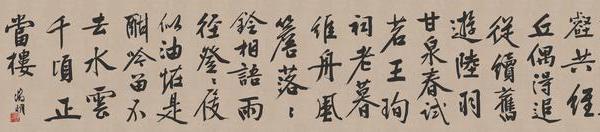 壑共經
丘偶得追
從續舊
遊陸羽
甘泉春試
茗王珣
祠老暮
維舟風
簷落〻
鈴相語雨
徑登〻屐
似油恠是
酣吟留不
去水雲
千頃正
當樓
徵明